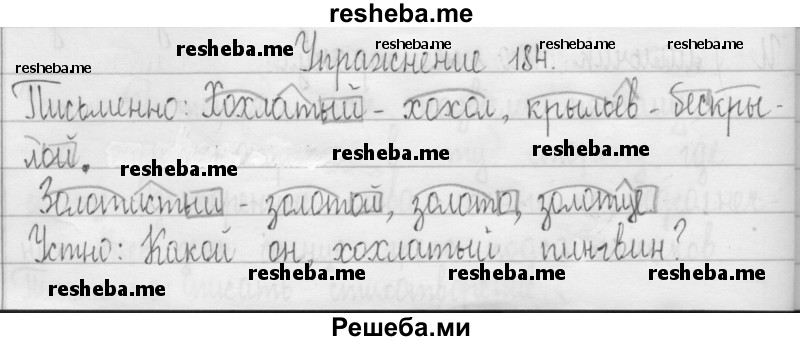 resheba.me
resheba.me resheba.me resheba.me
Упражнение 184.
resheba.me resheba.me
Письменно: Хохлатый - хохол, крыльев - бескры-
лый.
resheba.me resheba.me resheba.me
Золотистый - золотой, золото, золотце.
Устно: Какой он, хохлатый пингвин?
resheba.me resheba.me resheba.me
resheba.me
Решеба.ми